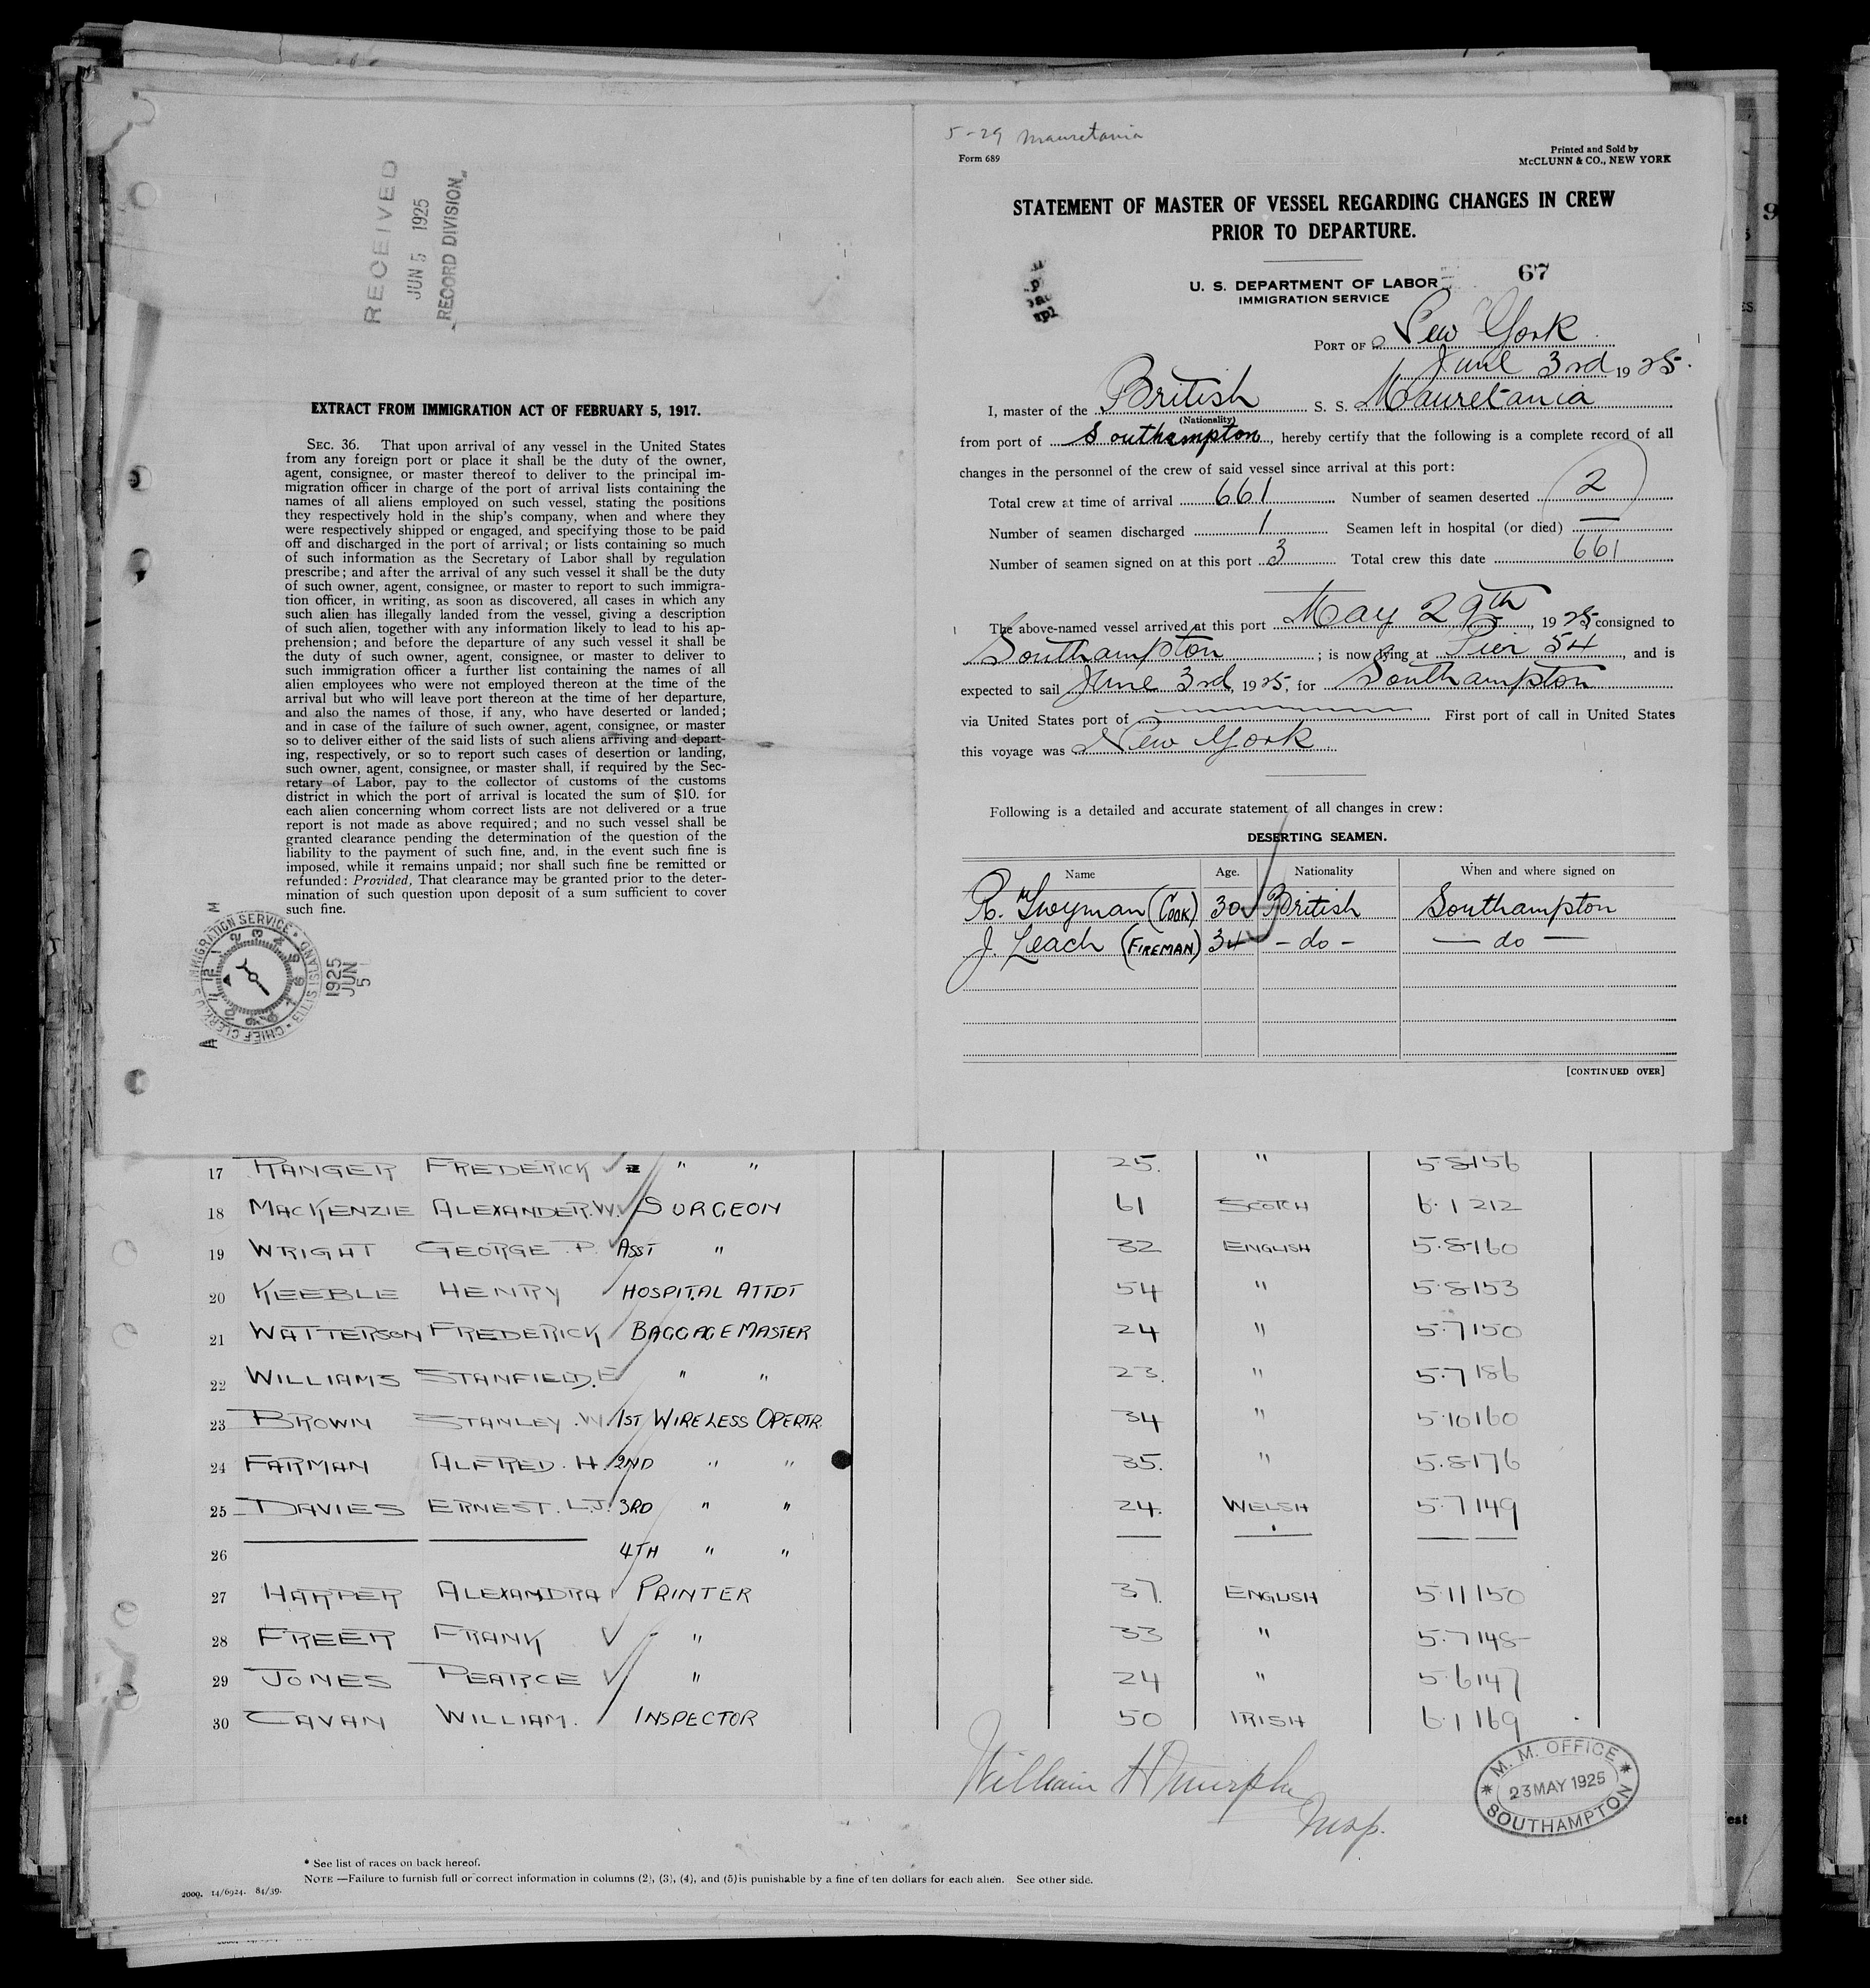 RECEIVED
JUN 5 1925
RECORD DIVISION
EXTRACT FROM IMMIGRATION ACT OF FEBRUARY 5, 1917.
SEC. 36. That upon arrival of any vessel in the United States
from any foreign port or place it shall be the duty of the owner,
agent, consignee, or master thereof to deliver to the principal im-
migration officer in charge of the port of arrival lists containing the
names of all aliens employed on such vessel, stating the positions
they respectively hold in the ship's company, when and where they
were respectively shipped or engaged, and specifying those to be paid
off and discharged in the port of arrival; or lists containing so much
of such information as the Secretary of Labor shall by regulation
prescribe; and after the arrival of any such vessel it shall be the duty
of such owner, agent, consignee, or master to report to such immigra-
tion officer, in writing, as soon as discovered, all cases in which any
such alien has illegally landed from the vessel, giving a description
of such alien, together with any information likely to lead to his ap-
prehension; and before the departure of any such vessel it shall be
the duty of such owner, agent, consignee, or master to deliver to
such immigration officer a further list containing the names of all
alien employees who were not employed thereon at the time of the
arrival but who will leave port thereon at the time of her departure,
and also the names of those, if any, who have deserted or landed;
and in case of the failure of such owner, agent, consignee, or master
so to deliver either of the said lists of such aliens arriving and depart-
ing, respectively, or so to report such cases of desertion or landing,
such owner, agent, consignee, or master shall, if required by the Sec-
retary of Labor, pay to the collector of customs of the customs
district in which the port of arrival is located the sum of $10. for
each alien concerning whom correct lists are not delivered or a true
report is not made as above required; and no such vessel shall be
granted clearance pending the determination of the question of the
liability to the payment of such fine, and, in the event such fine is
imposed, while it remains unpaid; nor shall such fine be remitted or
refunded: Provided, That clearance may be granted prior to the deter-
mination of such question upon deposit of a sum sufficient to cover
such fine.
CHIEF CLERK, U.S. IMMIGRATION SERVICE • ELLIS ISLAND •
1925
JUN
5
5-29 Mauretania
Form 689
Printed and Sold by
McCLUNN & CO., NEW YORK
STATEMENT OF MASTER OF VESSEL REGARDING CHANGES IN CREW
PRIOR TO DEPARTURE.
U. S. DEPARTMENT OF LABOR
IMMIGRATION SERVICE
67
PORT OF New York
June 3rd 1925.
I, master of the British S. S. Mauretania
(Nationality)
from port of Southampton, hereby certify that the following is a complete record of all
changes in the personnel of the crew of said vessel since arrival at this port:
Total crew at time of arrival 661 Number of seamen deserted 2
Number of seamen discharged 1 Seamen left in hospital (or died) —
Number of seamen signed on at this port 3 Total crew this date 661
The above-named vessel arrived at this port May 29th, 1925 consigned to
Southampton; is now lying at Pier 54, and is
expected to sail June 3rd, 1925, for Southampton
via United States port of First port of call in United States
this voyage was New York
Following is a detailed and accurate statement of all changes in crew:
DESERTING SEAMEN.
Name Age. Nationality When and where signed on
R. Twyman (COOK) 30 British Southampton
J. Leach (FIREMAN) 34 - do - — do —
[CONTINUED OVER]
17 RANGER FREDERICK " " 25. " 5 8 156
18 MACKENZIE ALEXANDER.W. SURGEON 61 SCOTCH 6.1 212
19 WRIGHT GEORGE.P. ASST " 32 ENGLISH 5.8 160
20 KEEBLE HENRY HOSPITAL ATTDT 54 " 5.8 153
21 WATTERSON FREDERICK BAGGAGE MASTER 24 " 5.7 150
22 WILLIAMS STANFIELD.E " " 23. " 5.7 186
23 BROWN STANLEY.W. 1ST WIRELESS OPERTR. 34 " 5.10 160
24 FARMAN ALFRED.H. 2ND " " 35. " 5.8 176
25 DAVIES ERNEST.L.J. 3RD " " 24. WELSH 5.7 149
26 4TH " "
27 HARPER ALEXANDRA PRINTER 37. ENGLISH 5.11 150
28 FREER FRANK " 33 " 5.7 148
29 JONES PEARCE " 24 " 5.6 147
30 CAVAN WILLIAM. INSPECTOR 50 IRISH 6.1 169
William H Murphy
Insp.
M. M. OFFICE
23 MAY 1925
SOUTHAMPTON
* See list of races on back hereof.
NOTE —Failure to furnish full or correct information in columns (2), (3), (4), and (5) is punishable by a fine of ten dollars for each alien. See other side.
2000. 14/6924. 84/39.